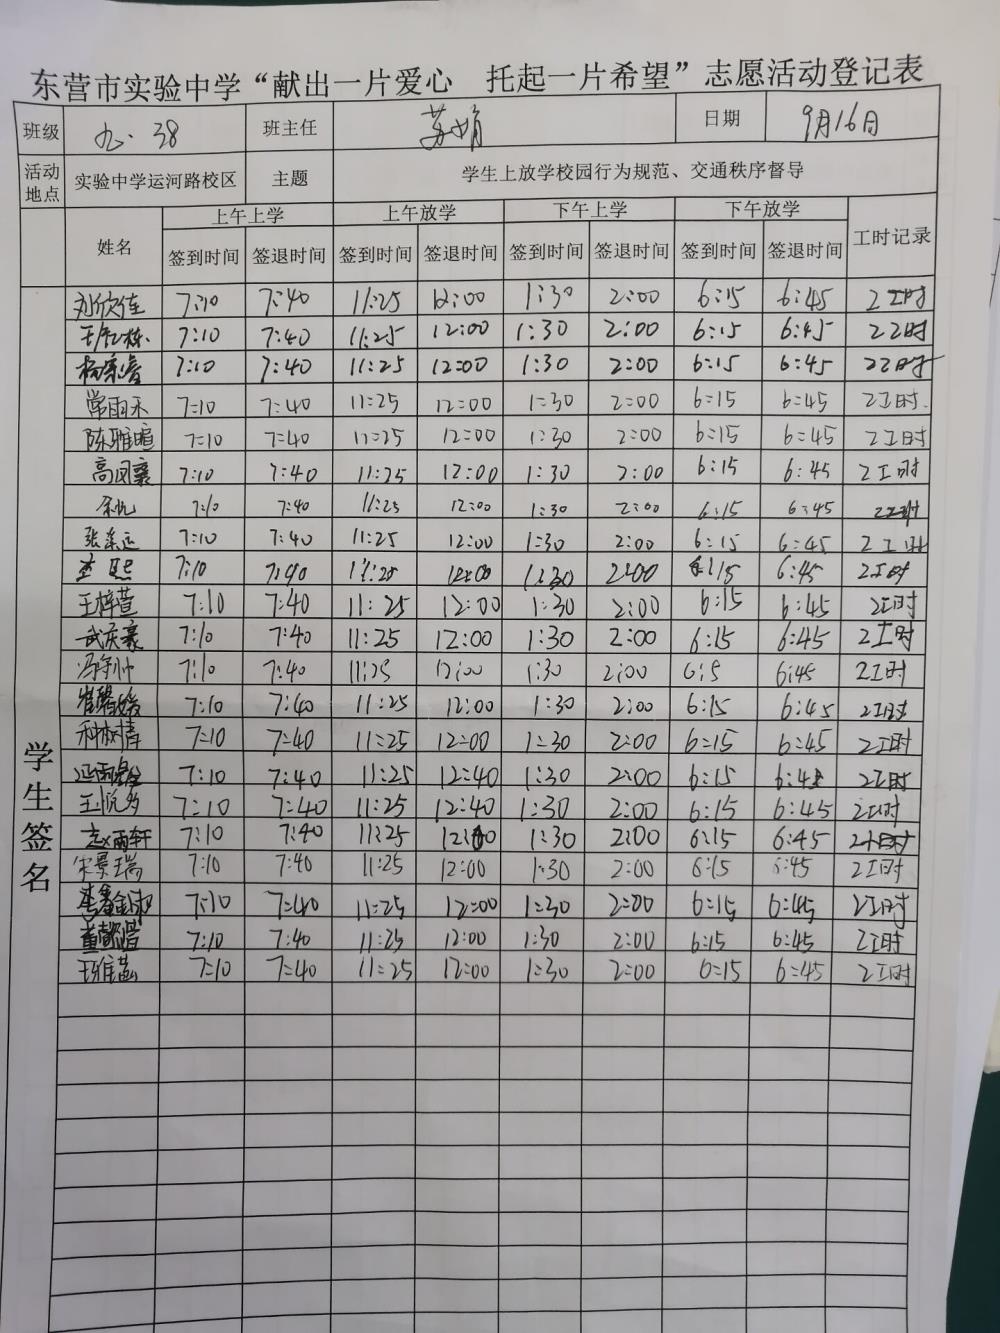 东营市实验中学“献出一片爱心 托起一片希望”志愿活动登记表
班级 九·38 班主任 苏娟 日期 9月16日
活动地点 实验中学运河路校区 主题 学生上放学校园行为规范、交通秩序督导
姓名 上午上学 上午放学 下午上学 下午放学 工时记录
签到时间 签退时间 签到时间 签退时间 签到时间 签退时间 签到时间 签退时间
学生签名
刘欣佳 7:10 7:40 11:25 12:00 1:30 2:00 6:15 6:45 2工时
7:10 7:40 11:25 12:00 1:30 2:00 6:15 6:45 2工时
7:10 7:40 11:25 12:00 1:30 2:00 6:15 6:45 2工时
常雨禾 7:10 7:40 11:25 12:00 1:30 2:00 6:15 6:45 2工时.
陈雅暄 7:10 7:40 11:25 12:00 1:30 2:00 6:15 6:45 2工时
高凤襄 7:10 7:40 11:25 12:00 1:30 2:00 6:15 6:45 2工时
7:10 7:40 11:25 12:00 1:30 2:00 6:15 6:45 2工时
7:10 7:40 11:25 12:00 1:30 2:00 6:15 6:45 2工时
李熙 7:10 7:40 11:25 12:00 1:30 2:00 6:15 6:45 2工时
王梓萱 7:10 7:40 11:25 12:00 1:30 2:00 6:15 6:45 2工时
武庆豪 7:10 7:40 11:25 12:00 1:30 2:00 6:15 6:45 2工时
7:10 7:40 11:25 12:00 1:30 2:00 6:15 6:45 2工时
7:10 7:40 11:25 12:00 1:30 2:00 6:15 6:45 2工时
7:10 7:40 11:25 12:00 1:30 2:00 6:15 6:45 2工时
7:10 7:40 11:25 12:40 1:30 2:00 6:15 6:45 2工时
7:10 7:40 11:25 12:40 1:30 2:00 6:15 6:45 2工时
赵雨轩 7:10 7:40 11:25 12:00 1:30 2:00 6:15 6:45 2工时
宋景瑞 7:10 7:40 11:25 12:00 1:30 2:00 6:15 6:45 2工时
7:10 7:40 11:25 12:00 1:30 2:00 6:15 6:45 2工时
7:10 7:40 11:25 12:00 1:30 2:00 6:15 6:45 2工时
7:10 7:40 11:25 12:00 1:30 2:00 6:15 6:45 2工时